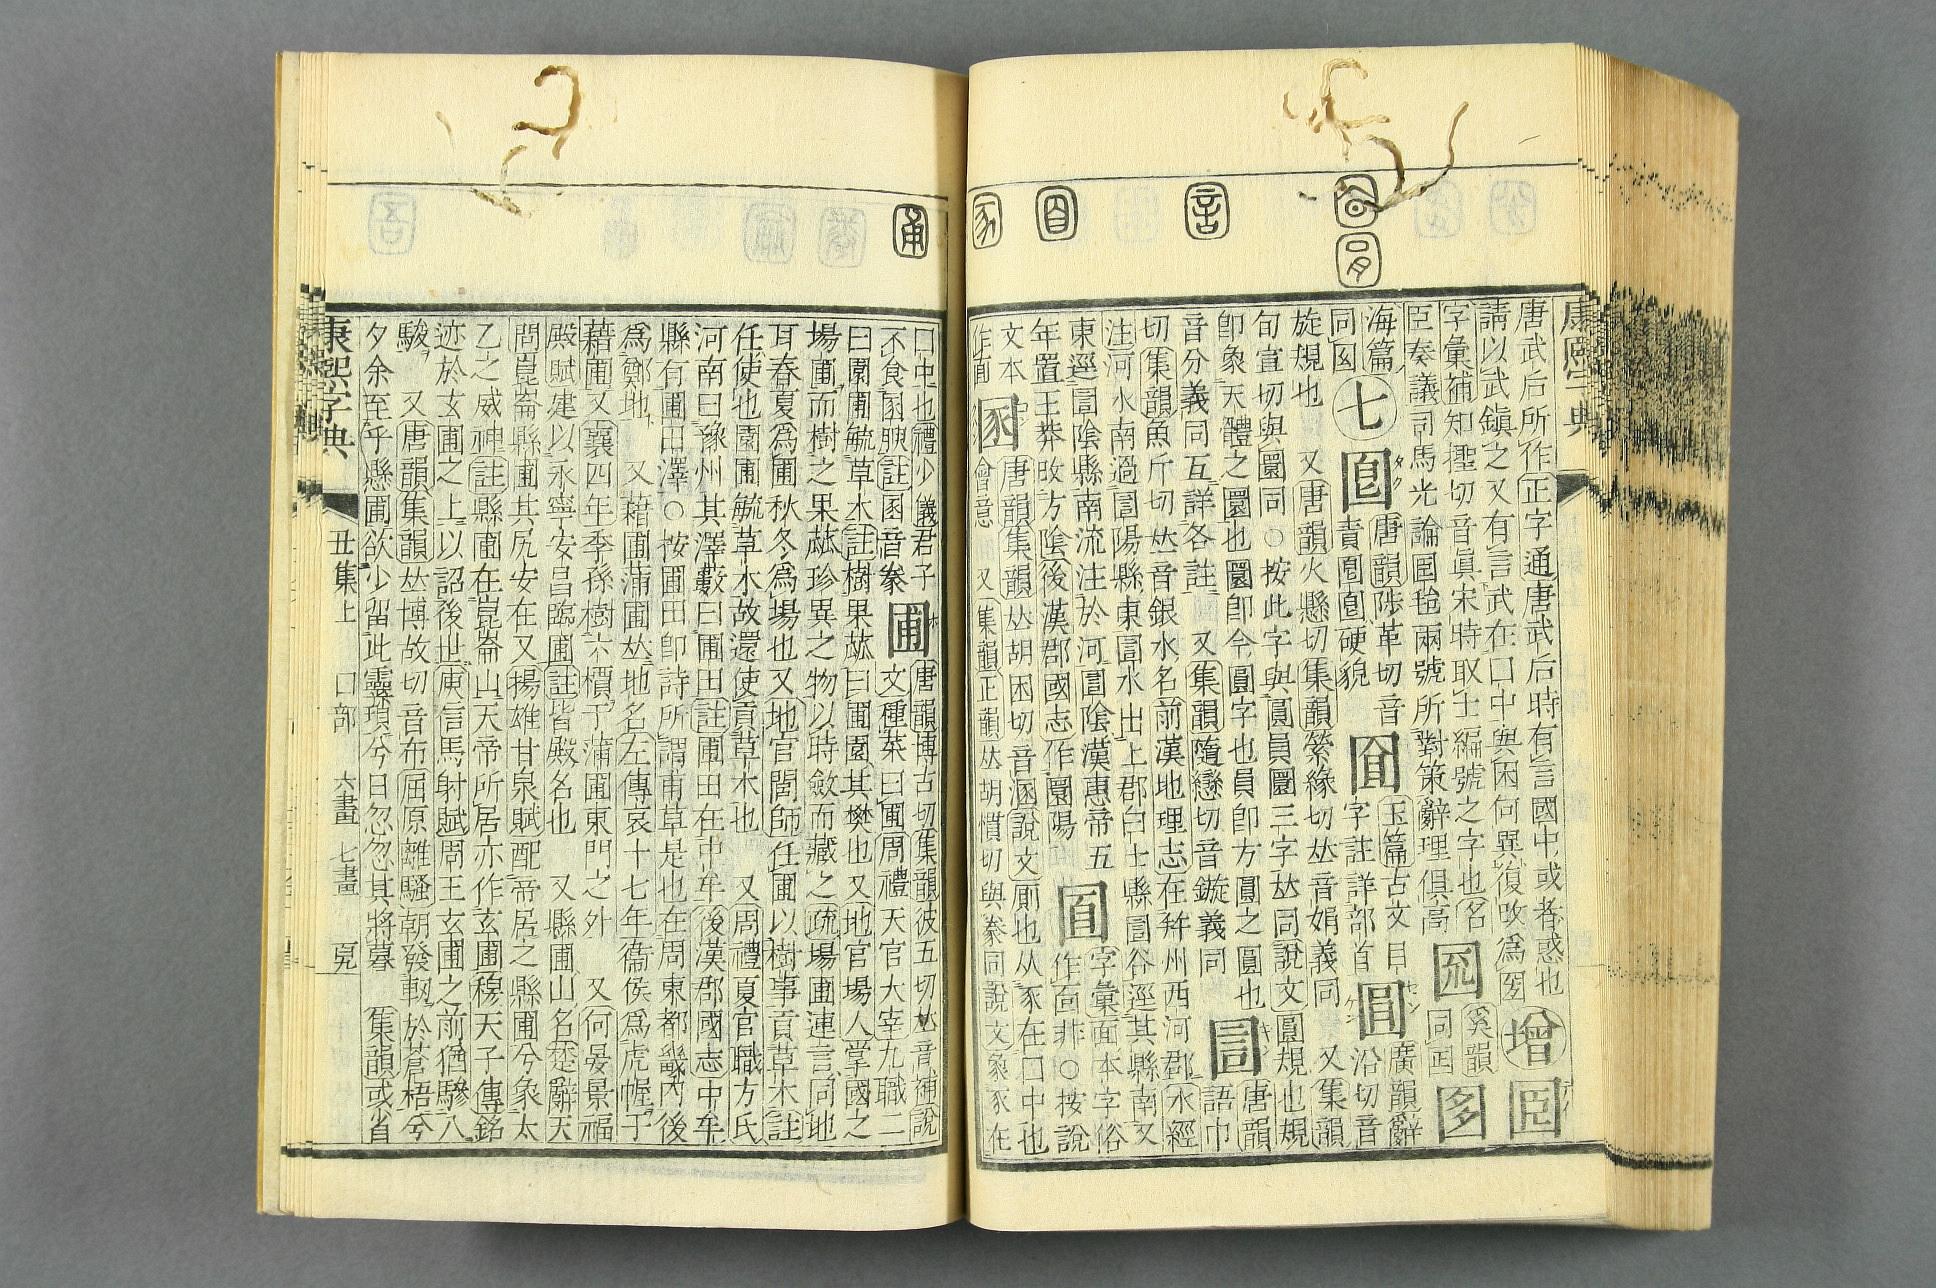 康熙字典
唐武后所作正字通唐武后時有言國中或者惑也
請以武鎭之又有言武在囗中與困何異復改爲圀
字彙補知㹅切音眞宋時取士編號之字也名
臣奏議司馬光論囻𡆸兩號所對策辭理俱高
增
奚韻
同囸
海篇
同囡
七
唐韻陟革切音
責𡇈𡇈硬貌
玉篇古文目
字註詳部首
圎
廣韻辭
沿切音
旋規也 又唐韻火懸切集韻縈緣切𠀤音娟義同 又集韻
旬宣切與圜同○按此字與圓員圜三字𠀤同說文圓規也規
卽象天體之圜也圜卽今圓字也員卽方圓之圓也
音分義同互詳各註 又集韻隨戀切音鏇義同
圁
唐韻
語巾
切集韻魚斤切𠀤音銀水名前漢地理志在幷州西河郡水經
注河水南過圁陽縣東圁水出上郡白土縣圁谷逕其縣南又
東逕圁陰縣南流注於河圁陰漢惠帝五
年置王莽改方陰後漢郡國志作圜陽
字彙面本字俗
作面非○按說
文本
作𠚑
圂
唐韻集韻𠀤胡困切音溷說文厠也从豕在囗中也
會意 又集韻正韻𠀤胡慣切與豢同說文象豕在
囗中也禮少儀君子
不食圂腴註圂音豢
圃
唐韻博古切集韻彼五切𠀤音補說
文種菜曰圃周禮天官大宰九職二
曰園圃毓草木註樹果蓏曰圃園其樊也又地官場人掌國之
場圃而樹之果蓏珍異之物以時斂而藏之疏場圃連言同地
耳春夏爲圃秋冬爲場也又地官閭師任圃以樹事貢草木註
任使也園圃毓草木故還使貢草木也 又周禮夏官職方氏
河南曰豫州其澤藪曰圃田註圃田在中牟後漢郡國志中牟
縣有圃田澤○按圃田卽詩所謂甫草是也在周東都畿內後
爲鄭地 又藉圃蒲圃𠀤地名左傳哀十七年衞侯爲虎幄于
藉圃又襄四年季孫樹六檟于蒲圃東門之外 又何晏景福
殿賦建以永寧安昌臨圃註皆殿名也 又縣圃山名楚辭天
問崑崙縣圃其凥安在又揚雄甘泉賦配帝居之縣圃兮象太
乙之威神註縣圃在崑崙山天帝所居亦作玄圃穆天子傳銘
迹於玄圃之上以詔後世庾信馬射賦周王玄圃之前猶驂八
駿 又唐韻集韻𠀤博故切音布屈原離騷朝發軔於蒼梧兮
夕余至乎懸圃欲少留此靈瑣兮日忽忽其將暮 集韻或省
康熙字典 丑集上 囗部 六畫 七畫